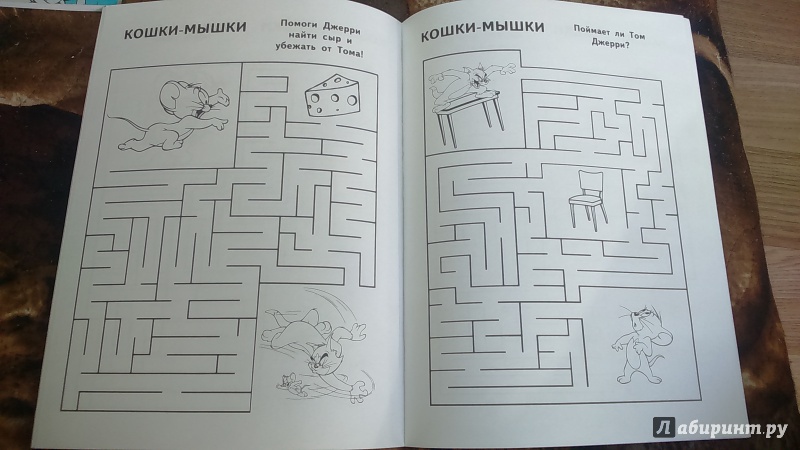 КОШКИ-МЫШКИ
Помоги Джерри
найти сыр и
убежать от Тома!
КОШКИ-МЫШКИ
Поймает ли Том
Джерри?
Лабиринт.ру